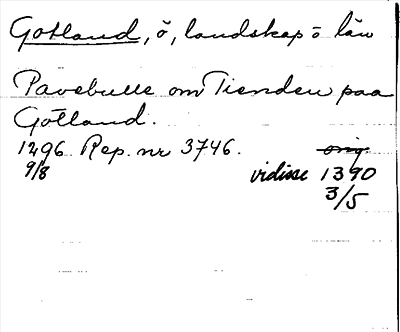 Gotland, ö, landskap o län
Pavebulle om Tienden paa
Gotland.
1296 Rep. nr 3746. orig.
9/8 vidisse 1390
3/5